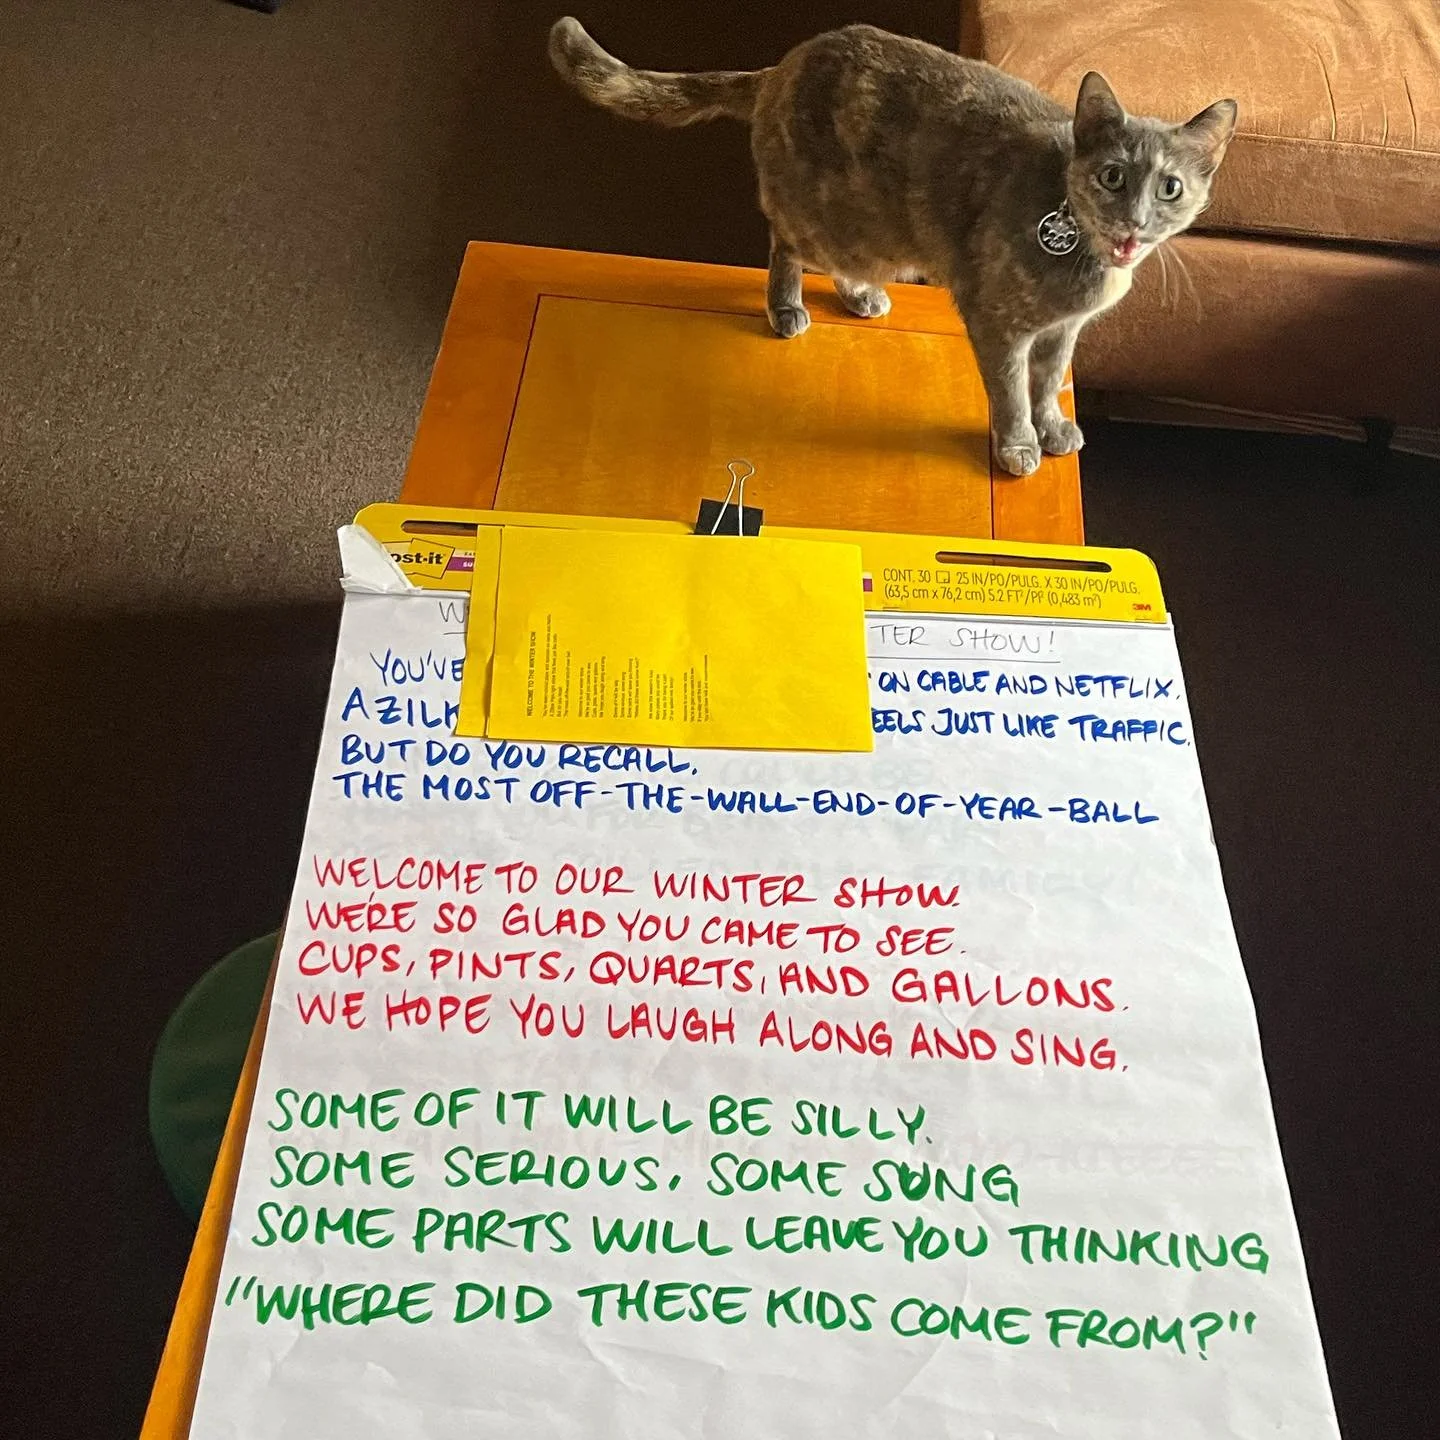 ost-it
CONT. 30 25 IN/PO/PULG. X 30 IN/PO/PULG.
(63,5 cm x 76,2 cm) 5.2 FT²/PI² (0,483 m²)
3M
WELCOME TO THE WINTER SHOW
W TER SHOW!
YOU'VE ON CABLE AND NETFLIX.
AZILK EELS JUST LIKE TRAFFIC.
BUT DO YOU RECALL,
THE MOST OFF-THE-WALL-END-OF-YEAR-BALL
WELCOME TO OUR WINTER SHOW.
WE'RE SO GLAD YOU CAME TO SEE.
CUPS, PINTS, QUARTS, AND GALLONS.
WE HOPE YOU LAUGH ALONG AND SING.
SOME OF IT WILL BE SILLY.
SOME SERIOUS, SOME SUNG
SOME PARTS WILL LEAVE YOU THINKING
"WHERE DID THESE KIDS COME FROM?"